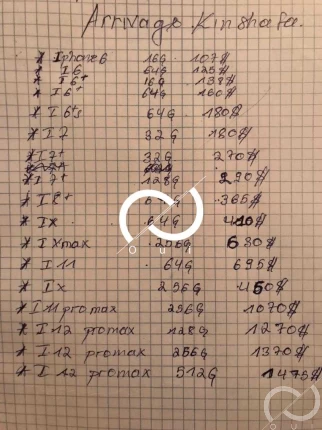 Arrivage Kinshasa.
* Iphone6 16G 107$
* I6 64G 125$
* I6+ 16G 138$
* I6+ 64G 160$
* I6+s 64G 180$
* I7 32G 180$
* I7+ 32G 270$
* I7+ 128G 290$
* I8+ 64G 365$
* Ix 64G 410$
* I Xmax 256G 630$
* I11 64G 695$
* Ix 256G 450$
* I11 promax 256G 1070$
* I12 promax 128G 1270$
* I12 promax 256G 1370$
* I 12 promax 512G 1475$
OUI